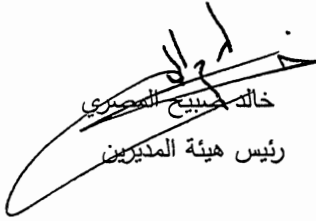 خالد صبيح المصري
رئيس هيئة المديرين